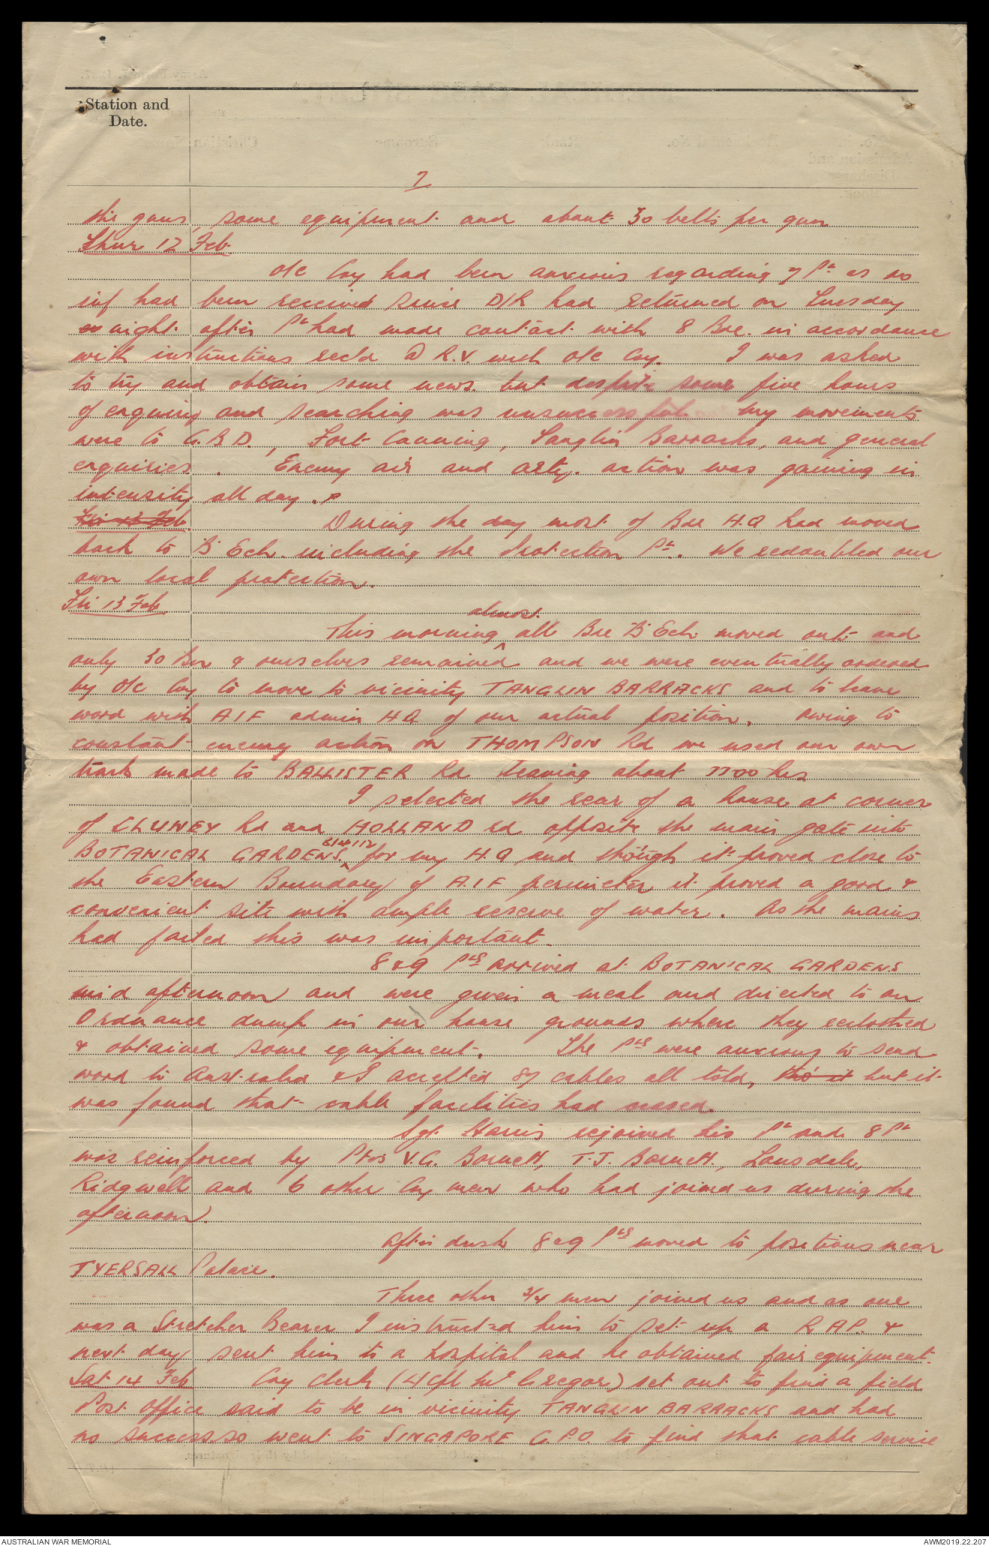 Station and
Date.
7
the guns, some equipment and about 30 belts per gun
Thur 12 Feb
O/C Coy had been anxious regarding 7 Pl as no
inf had been received since D/R had returned on Tuesday
night after Pl had made contact with 8 Bde. in accordance
with instructions recd @ R.V with O/C Coy. I was asked
to try and obtain some news but despite some five hours
of enquiry and searching was unsuccessful. My movements
were to G.B.D., Fort Canning, Tanglin Barracks, and general
enquiries. Enemy air and arty. action was gaining in
intensity all day.
Fri 13 Feb
During the day most of Bde H.Q had moved
back to 'B' Ech. including the Protection Pl. We redoubled our
own local protection.
Fri 13 Feb
almost
This morning all Bde 'B' Ech moved out and
only 30 Bn & ourselves remained and we were eventually ordered
by O/C Coy to move to vicinity TANGLIN BARRACKS and to leave
word with AIF admin HQ of our actual position. Owing to
constant enemy action on THOMPSON Rd we used our own
track made to BALLISTER Rd leaving about 1700 hrs
I selected the rear of a house at corner
of CLUNEY Rd and HOLLAND Rd opposite the main gate into
BOTANICAL GARDENS, for my H.Q and though it proved close to
the Eastern Boundary of A.I.F perimeter it proved a good &
convenient site with ample reserve of water. As the mains
had failed this was important.
8 & 9 Pls arrived at BOTANICAL GARDENS
mid afternoon and were given a meal and directed to an
Ordnance dump in our house grounds where they reclothed
& obtained some equipment. The Pls were anxious to send
word to Australia & I accepted 87 cables all told, tho' it but it
was found that cable facilities had ceased.
Sgt Harris rejoined his Pl and 8 Pl
was reinforced by Ptes V.G. Barnett, T.J. Barnett, Lansdale,
Ridgwell and 6 other Coy men who had joined us during the
afternoon.
After dusk 8 & 9 Pls moved to positions near
TYERSALL Palace.
Three other 2/4 men joined us and as one
was a Stretcher Bearer I instructed him to set up a R.A.P. &
next day sent him to a hospital and he obtained fair equipment.
Sat 14 Feb Coy Clerk (L/Cpl McGregor) set out to find a field
Post office said to be in vicinity TANGLIN BARRACKS and had
no success so went to SINGAPORE G.P.O. to find that cable service
AUSTRALIAN WAR MEMORIAL
AWM2019.22.207